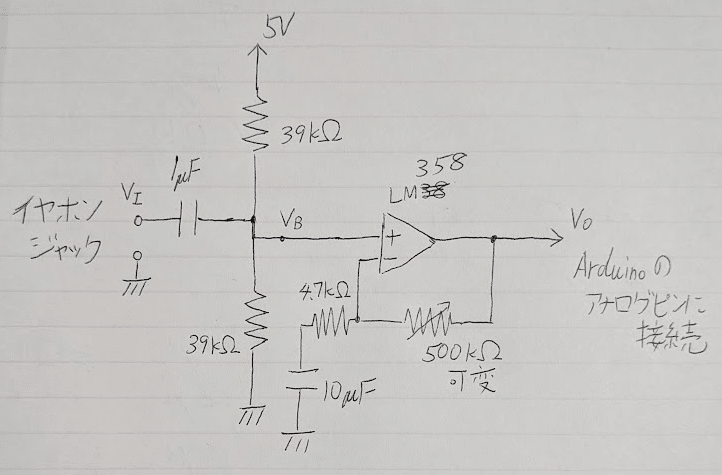 5V
39kΩ
1μF
358
LM
VI
イヤホン
ジャック
VB
+
−
VO
Arduinoの
アナログピンに
接続
4.7kΩ
39kΩ
500kΩ
可変
10μF